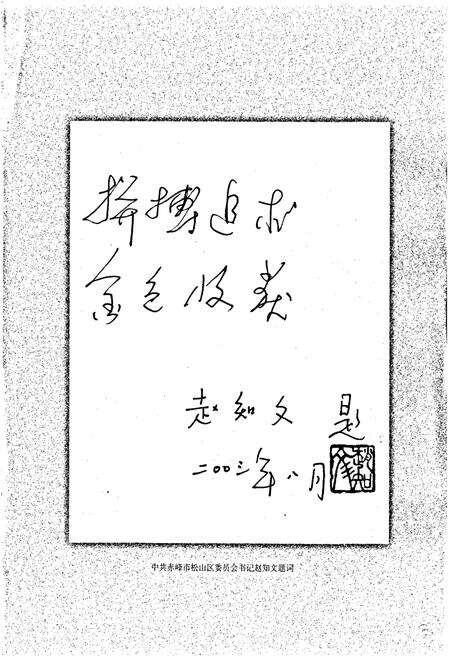 拼搏追求
金色收获
赵知文 题
二〇〇三年八月
中共赤峰市松山区委员会书记赵知文题词